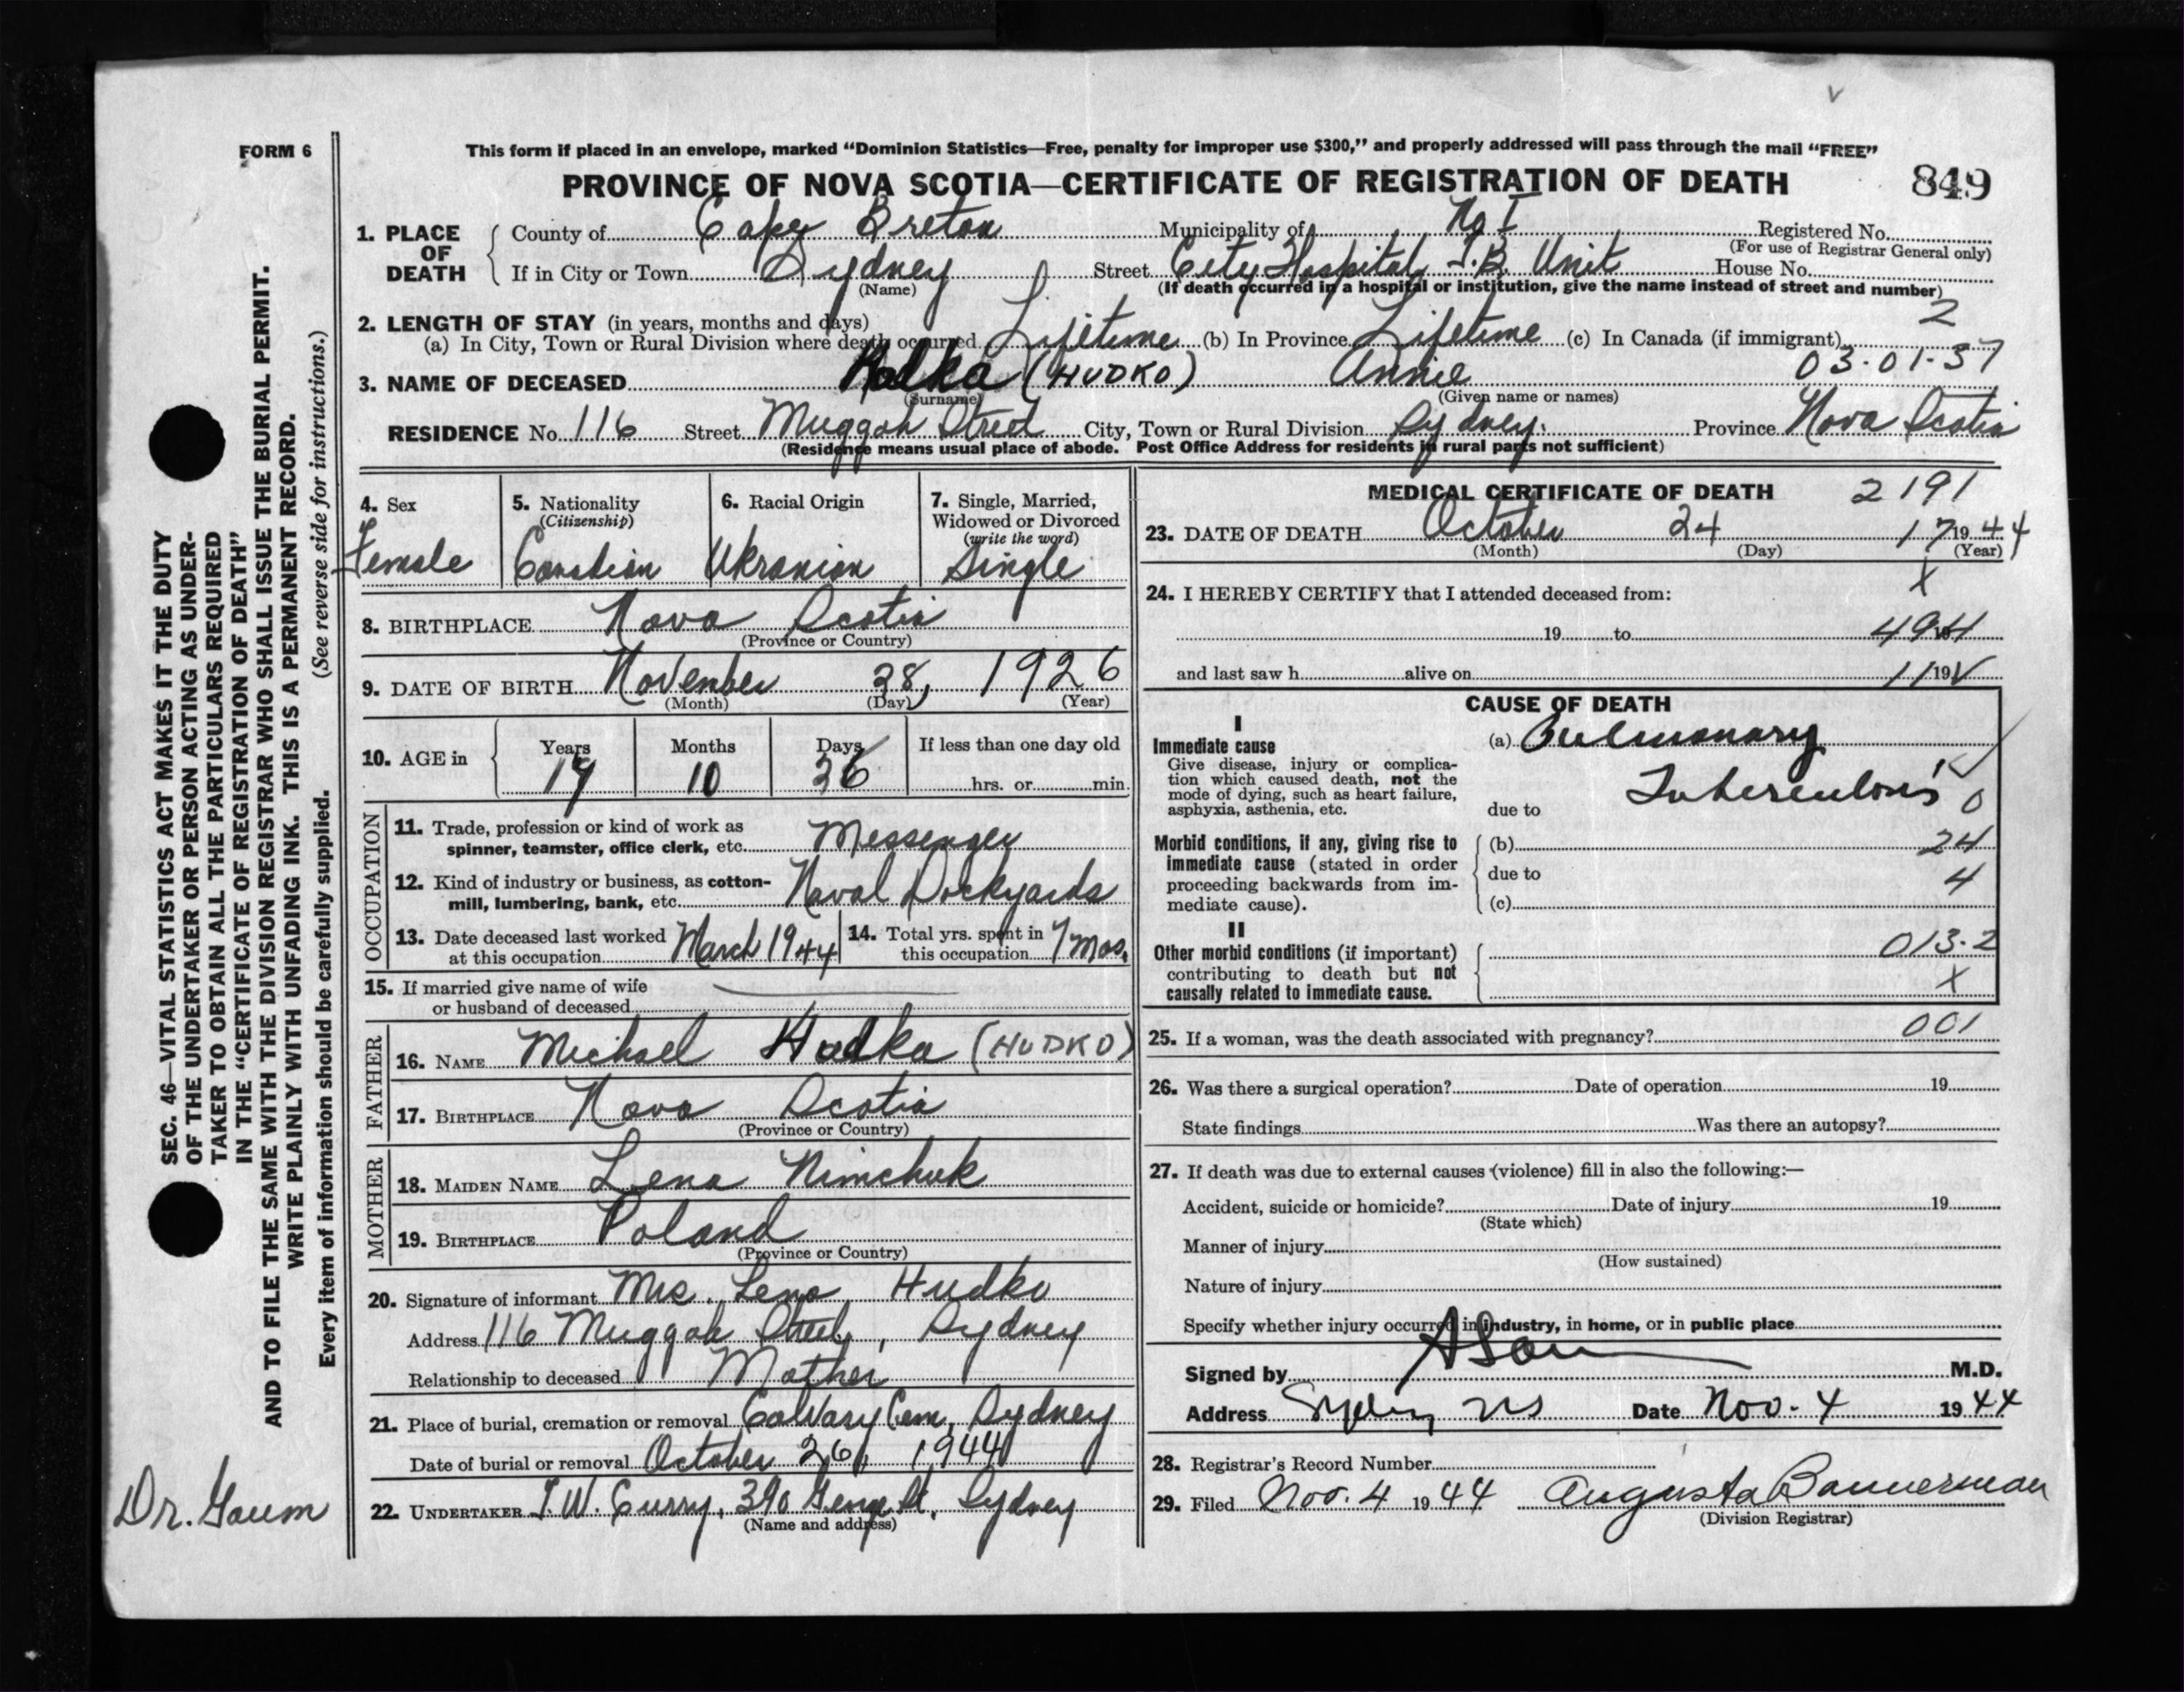 FORM 6
This form if placed in an envelope, marked “Dominion Statistics—Free, penalty for improper use $300,” and properly addressed will pass through the mail “FREE”
PROVINCE OF NOVA SCOTIA—CERTIFICATE OF REGISTRATION OF DEATH 849
1. PLACE OF DEATH
County of Cape Breton Municipality of No 1 Registered No.
(For use of Registrar General only)
If in City or Town Sydney Street City Hospital T.B. Unit House No.
(Name) (If death occurred in a hospital or institution, give the name instead of street and number)
2. LENGTH OF STAY (in years, months and days) 2
(a) In City, Town or Rural Division where death occurred Lifetime (b) In Province Lifetime (c) In Canada (if immigrant)
03-01-37
3. NAME OF DECEASED (HUDKO) Annie
(Surname) (Given name or names)
RESIDENCE No. 116 Street Muggah Street City, Town or Rural Division Sydney Province Nova Scotia
(Residence means usual place of abode. Post Office Address for residents in rural parts not sufficient)
4. Sex Female
5. Nationality (Citizenship) Canadian
6. Racial Origin Ukranian
7. Single, Married, Widowed or Divorced (write the word) Single
8. BIRTHPLACE Nova Scotia
(Province or Country)
9. DATE OF BIRTH November 28, 1926
(Month) (Day) (Year)
10. AGE in Years Months Days If less than one day old
10 26 hrs. or min.
OCCUPATION
11. Trade, profession or kind of work as
spinner, teamster, office clerk, etc. Messenger
12. Kind of industry or business, as cotton-
mill, lumbering, bank, etc. Naval Dockyards
13. Date deceased last worked at this occupation March 1944
14. Total yrs. spent in this occupation 7 mos.
15. If married give name of wife
or husband of deceased
FATHER
16. NAME Michael Hudka (HUDKO)
17. BIRTHPLACE Nova Scotia
(Province or Country)
MOTHER
18. MAIDEN NAME Lena Nimchuk
19. BIRTHPLACE Poland
(Province or Country)
20. Signature of informant Mrs. Lena Hudko
Address 116 Muggah Street, Sydney
Relationship to deceased Mother
21. Place of burial, cremation or removal Calvary Cem, Sydney
Date of burial or removal October 26, 1944
22. UNDERTAKER T.W. Curry, 390 George St, Sydney
(Name and address)
MEDICAL CERTIFICATE OF DEATH 2191
23. DATE OF DEATH October 24 17 1944
(Month) (Day) (Year)
24. I HEREBY CERTIFY that I attended deceased from: X
19 to 494 19
and last saw h alive on 11 19 V
CAUSE OF DEATH
I
Immediate cause (a) Pulmonary
Give disease, injury or complica-
tion which caused death, not the
mode of dying, such as heart failure,
asphyxia, asthenia, etc. due to Tuberculosis 0
Morbid conditions, if any, giving rise to (b) 24
immediate cause (stated in order due to 4
proceeding backwards from im-
mediate cause). (c)
II
Other morbid conditions (if important) 013.2
contributing to death but not X
causally related to immediate cause.
25. If a woman, was the death associated with pregnancy? 001
26. Was there a surgical operation? Date of operation 19
State findings Was there an autopsy?
27. If death was due to external causes (violence) fill in also the following:—
Accident, suicide or homicide? Date of injury 19
(State which)
Manner of injury
(How sustained)
Nature of injury
Specify whether injury occurred in industry, in home, or in public place
Signed by M.D.
Address Sydney NS Date Nov. 4 1944
28. Registrar's Record Number
29. Filed Nov. 4 1944 Augusta Bannerman
(Division Registrar)
SEC. 46—VITAL STATISTICS ACT MAKES IT THE DUTY
OF THE UNDERTAKER OR PERSON ACTING AS UNDER-
TAKER TO OBTAIN ALL THE PARTICULARS REQUIRED
IN THE “CERTIFICATE OF REGISTRATION OF DEATH”
AND TO FILE THE SAME WITH THE DIVISION REGISTRAR WHO SHALL ISSUE THE BURIAL PERMIT.
WRITE PLAINLY WITH UNFADING INK. THIS IS A PERMANENT RECORD.
Every item of information should be carefully supplied. (See reverse side for instructions.)
Dr. Gaum